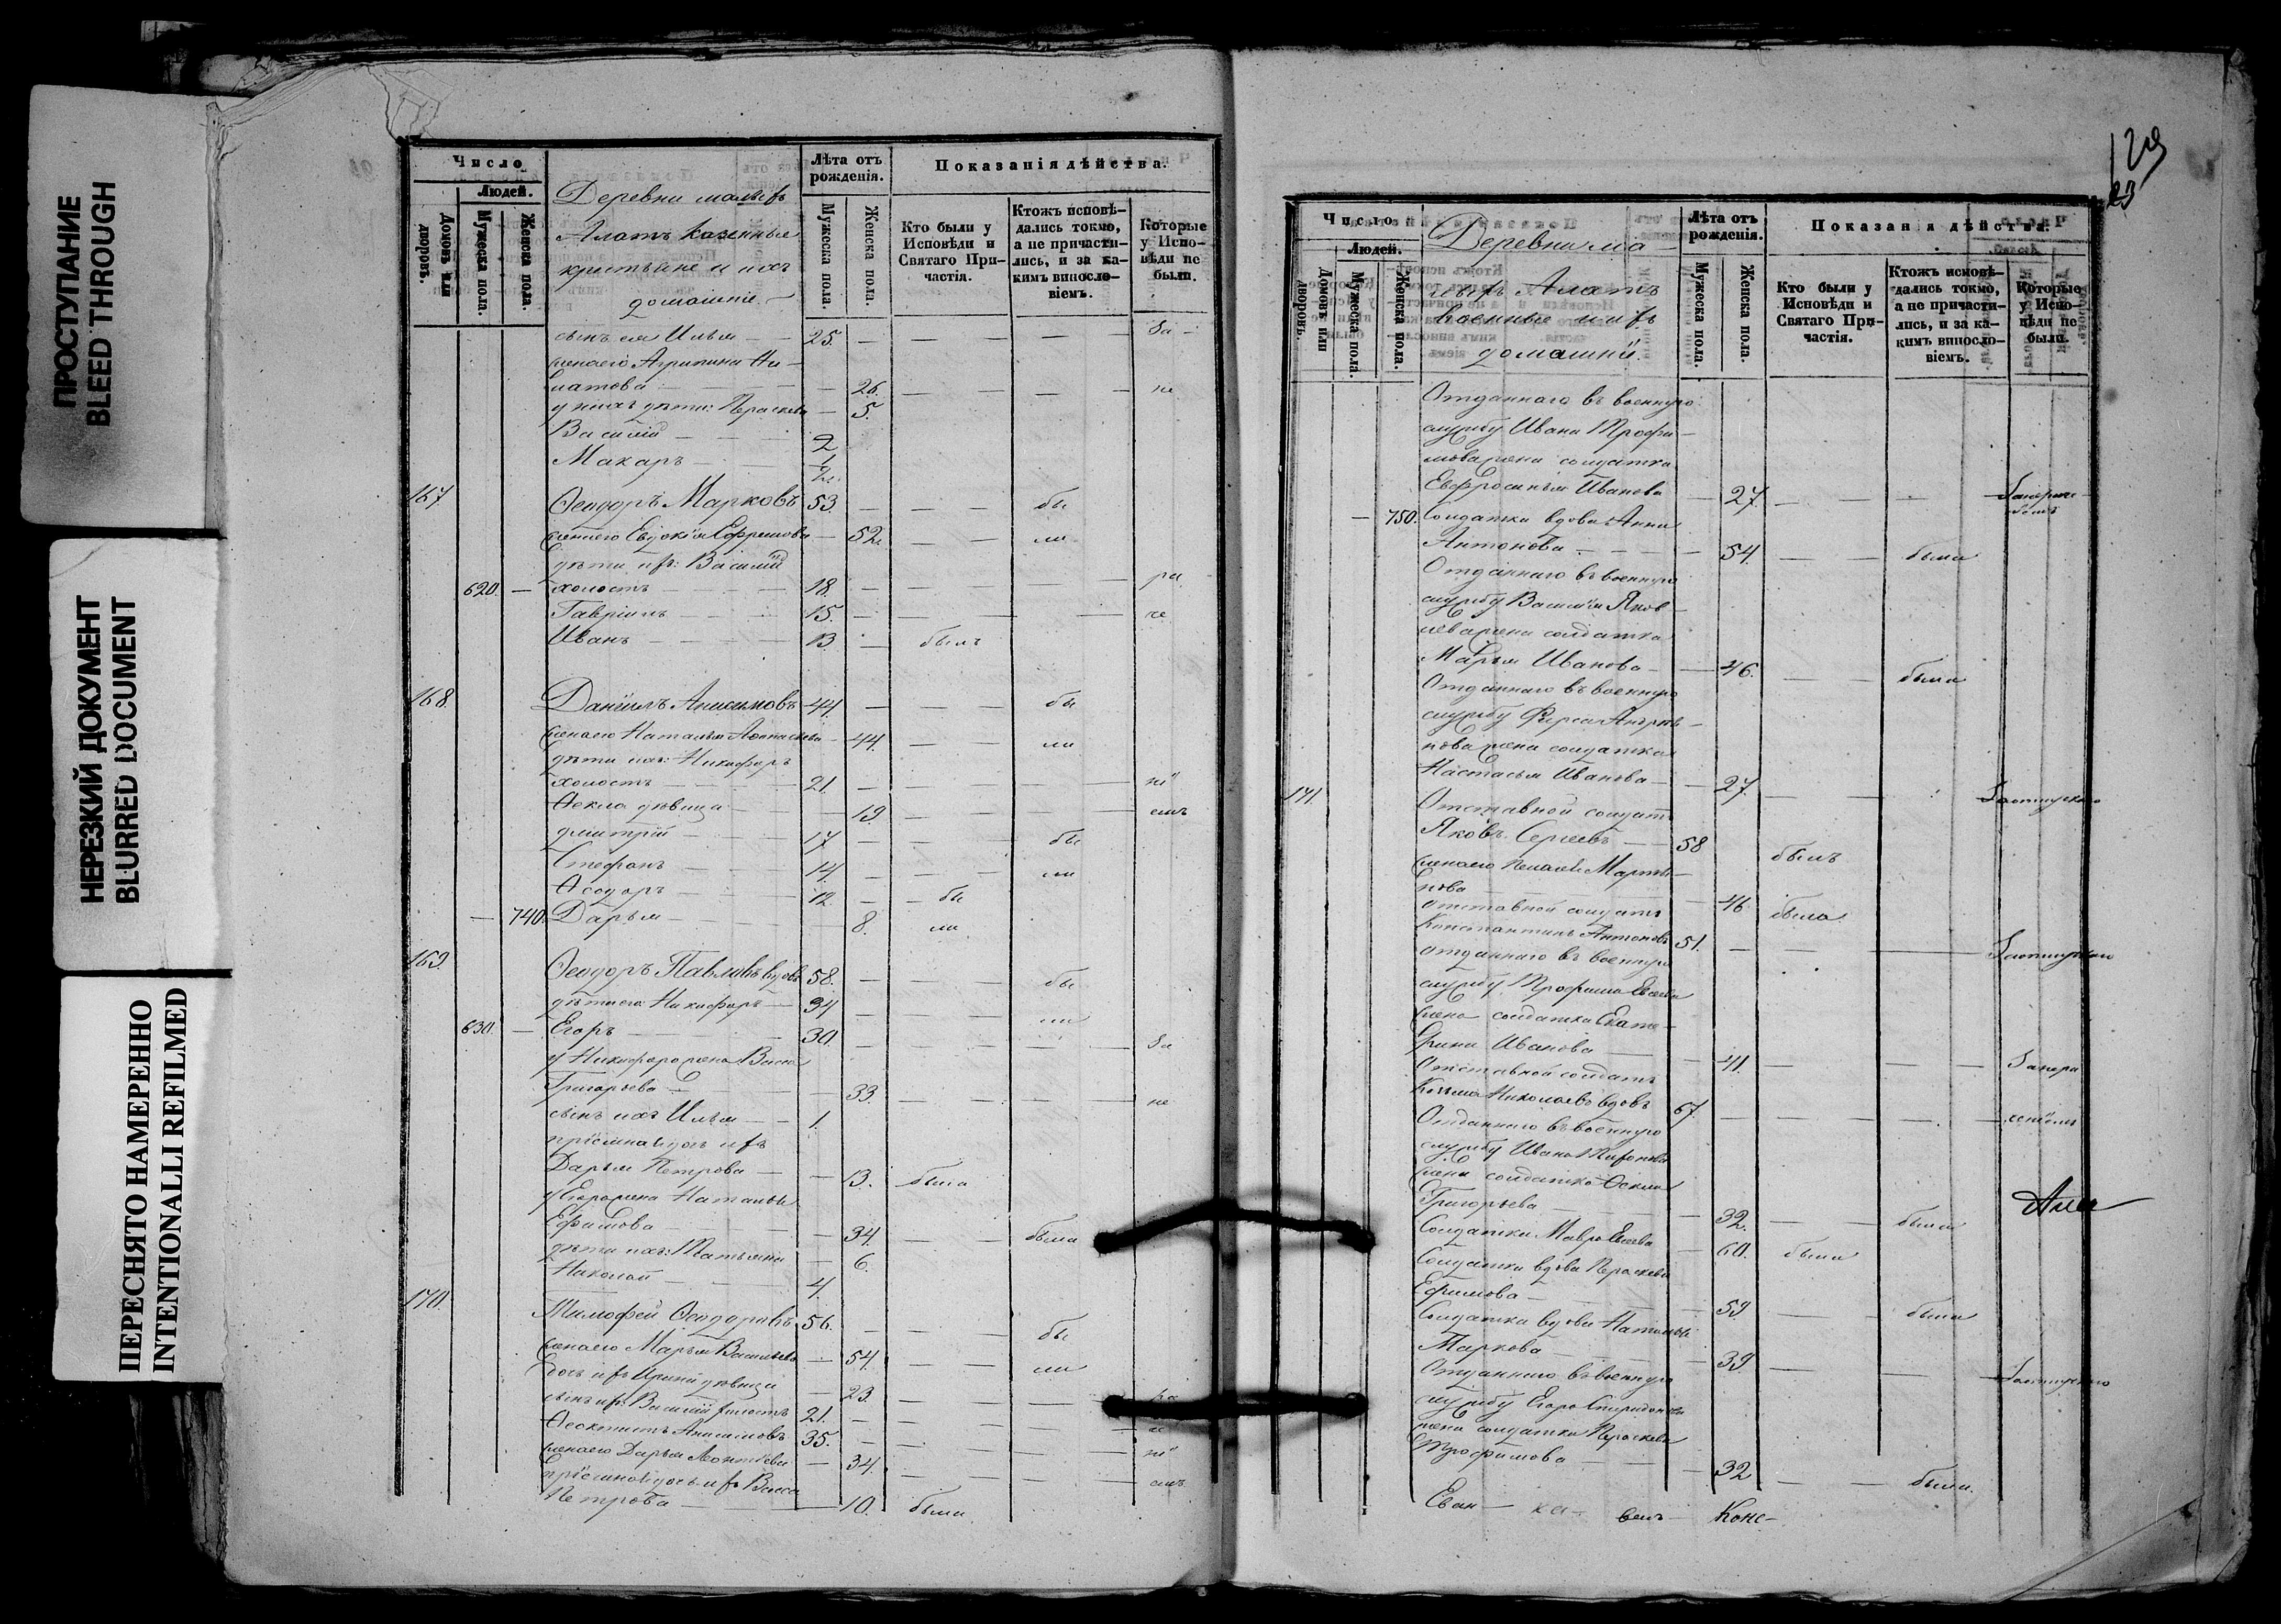 ПРОСТУПАНИЕ
BLEED THROUGH
НЕРЕЗКИЙ ДОКУМЕНТ
BLURRED DOCUMENT
ПЕРЕСНЯТО НАМЕРЕННО
INTENTIONALLI REFILMED
Число
Людей.
Домовъ или дворовъ.
Мужеска пола.
Женска пола.
Деревни малыхъ
Алатъ казенные
крестьяне и ихъ
домашніе
Лѣта отъ рожденія.
Мужеска пола.
Женска пола.
Показанія дѣйства.
Кто были у Исповѣди и Святаго Причастія.
Ктожъ исповѣдались токмо, а не причастились, и за какимъ винословіемъ.
Которые у Исповѣди не были.
сынъ ея Илья 25. за
жена его Агрипина Иг-
натова 26. не
у нихъ дѣти: Параскева 5.
Василій 2
Макаръ 1/2
167 Ѳеодоръ Марковъ 53. бы
жена его Евдокія Ефремова 52. ли
дѣти ихъ: Василій
620. холостъ 18. ра
Гавріилъ 15. не
Иванъ 13 былъ
168. Даніилъ Анисимовъ 44. бы
жена его Наталья Афанасьева 44. ли
дѣти ихъ: Никифоръ
холостъ 21. ні
Ѳекла дѣвица 19. емъ
Дмитрій 17 бы
Стефанъ 14. ли
Ѳеодоръ 12. бы
740. Дарья 8. ли
169. Ѳеодоръ Павловъ вдовъ 58. бы
дѣти его: Никифоръ 34 ли
630. Егоръ 30 за
у Никифора жена Васса
Григорьева 33. не
сынъ ихъ Илья 1.
пріемная дочь ихъ
Дарья Петрова 13. была
у Егора жена Наталья
Ефимова 34. была
дѣти ихъ: Татьяна 6.
Николай 4.
170. Тимофей Ѳеодоровъ 56. бы
жена его Марья Васильева 54. ли
дочь ихъ Ирина дѣвица 23. ра
сынъ ихъ Василій холостъ 21. не
Ѳеоктистъ Анисимовъ 35. ні
жена его Дарья Леонтьева 34. емъ
пріемная дочь ихъ Васса
Петрова 10. была
129
23
Число
Людей.
Домовъ или дворовъ.
Мужеска пола.
Женска пола.
Деревни ма-
лыхъ Алатъ
военные и ихъ
домашніи.
Лѣта отъ рожденія.
Мужеска пола.
Женска пола.
Показанія дѣйства.
Кто были у Исповѣди и Святаго Причастія.
Ктожъ исповѣдались токмо, а не причастились, и за какимъ винословіемъ.
Которые у Исповѣди не были.
Отданнаго въ военную
службу Ивана Трофи-
мова жена солдатка
Евфросинья Иванова 27.
750. Солдатка вдова Анна
Антонова 54. была
Отданнаго въ военную
службу Василья Яков-
лева жена солдатка
Марья Иванова 46. была
Отданнаго въ военную
службу Фирса Андрея-
нова жена солдатка
Настасья Иванова 27.
171. Отставной солдатъ
Яковъ Сергеевъ 58 былъ
жена его Пелагея Марты-
нова 46 была
отставной солдатъ
Константинъ Антоновъ 51.
отданнаго въ военную
службу Трофима
жена солдатка Екате-
рина Иванова 41.
Отставной солдатъ
Козьма Николаевъ вдовъ 67.
Отданнаго въ военную
службу Ивана Тихонова
жена солдатка Ѳекла
Григорьева 32. была
Солдатка Мавра 60. была
Солдатка вдова Параскева
Ефимова 59 была
Солдатка вдова Наталья
Маркова 39
Отданнаго въ военную
службу Егора Спиридонова
жена солдатка Параскева
Трофимова 32 была.